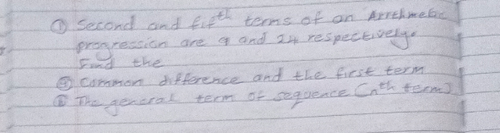 ① Second and fifth terms of an Arrthmetic
progression are 9 and 24 respectively.
Find the
① Common difference and the first term
② The general term of sequence (nth term)